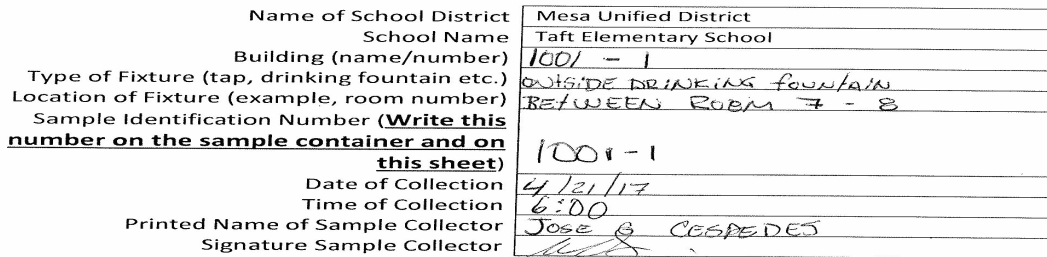 Name of School District Mesa Unified District
School Name Taft Elementary School
Building (name/number) 1001 - 1
Type of Fixture (tap, drinking fountain etc.) OUTSIDE DRINKING fountAIN
Location of Fixture (example, room number) BETWEEN ROOM 7 - 8
Sample Identification Number (Write this
number on the sample container and on
this sheet) 1001-1
Date of Collection 4/21/17
Time of Collection 6:00
Printed Name of Sample Collector JOSE B CESPEDES
Signature Sample Collector